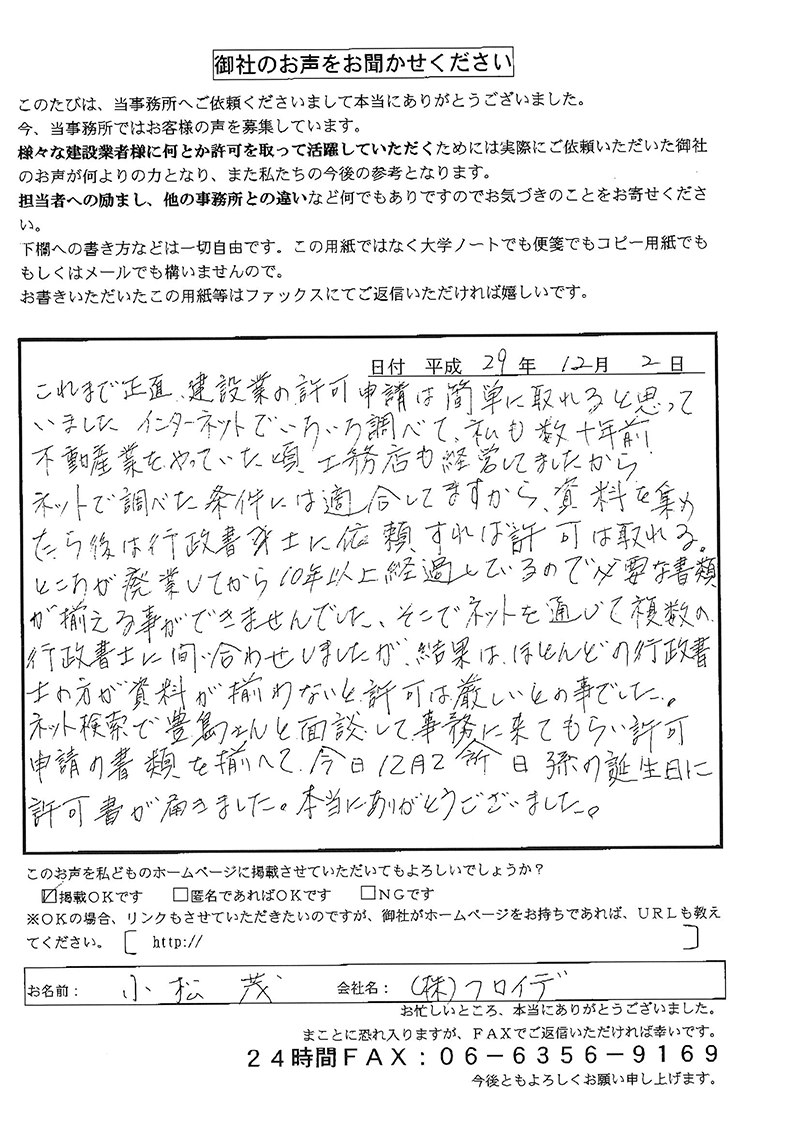 御社のお声をお聞かせください
このたびは、当事務所へご依頼くださいまして本当にありがとうございました。
今、当事務所ではお客様の声を募集しています。
様々な建設業者様に何とか許可を取って活躍していただくためには実際にご依頼いただいた御社
のお声が何よりの力となり、また私たちの今後の参考となります。
担当者への励まし、他の事務所との違いなど何でもありですのでお気づきのことをお寄せくださ
い。
下欄への書き方などは一切自由です。この用紙ではなく大学ノートでも便箋でもコピー用紙でも
もしくはメールでも構いませんので。
お書きいただいたこの用紙等はファックスにてご返信いただければ嬉しいです。
日付 平成 29 年 12月 2 日
これまで正直、建設業の許可申請は簡単に取れると思って
いました インターネットでいろいろ調べて、私も数十年前
不動産業をやっていた頃 工務店も経営してましたから
ネットで調べた条件には適合してますから、資料を集め
たら後は行政書士に依頼すれば許可は取れる。
ところが廃業してから10年以上経過しているので必要な書類
が揃える事ができませんでした、そこでネットを通じて複数の
行政書士に問い合わせしましたが、結果は、ほとんどの行政書
士の方が資料が揃わないと許可は厳しいとの事でした。
ネット検索で豊島さんと面談して事務所に来てもらい許可
申請の書類を揃へて、今日12月2日孫の誕生日に
許可書が届きました。本当にありがとうございました。
このお声を私どものホームページに掲載させていただいてもよろしいでしょうか？
☑掲載ＯＫです □匿名であればＯＫです □ＮＧです
※ＯＫの場合、リンクもさせていただきたいのですが、御社がホームページをお持ちであれば、ＵＲＬも教え
てください。 [ http:// ]
お名前： 小松 茂 会社名： (株)フロイデ
お忙しいところ、本当にありがとうございました。
まことに恐れ入りますが、ＦＡＸでご返信いただければ幸いです。
２４時間ＦＡＸ：０６－６３５６－９１６９
今後ともよろしくお願い申し上げます。